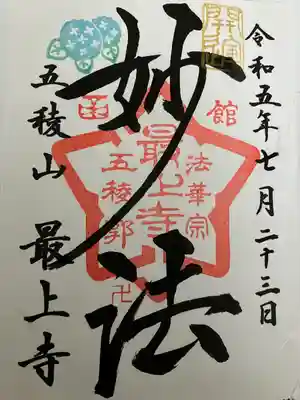 開運
令和五年七月二十三日
妙法
函館
法華宗
最上寺
五稜郭
卍
五稜山 最上寺